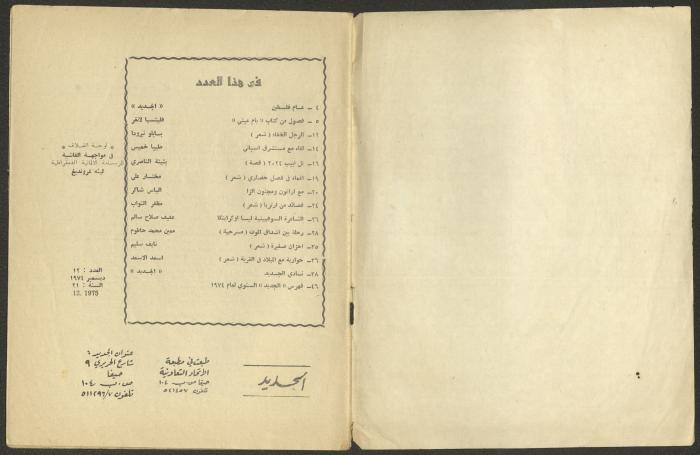 في هذا العدد
٤ – عام فلسطين « الجديد »
٥ – فصول من كتاب « بأم عيني » فليتسيا لانغر
١٢– الرجل اللقاء ( شعر ) بابلو نيرودا
١٣– لقاء مع مستشرق اسباني ظبيا خميس
١٦– تل ابيب ٢٠٢٤ ( قصة ) بثينة الناصري
١٩– الفداء في فصل حضاري ( شعر ) مختار علي
٢٠– مع اراغون ومجنون الزا الياس شاكر
٢٤– قصائد من ارتريا ( شعر ) مظفر النواب
٢٦– الشاعرة السوفييتية ليسا اوكراينكا عفيف صلاح سالم
٢٨– رحلة بين اشداق الموت ( مسرحية ) معين محمد حاطوم
٣٥– احزان صغيرة ( شعر ) نايف سليم
٣٦– حوارية مع البلاد في الغربة ( شعر ) اسعد الاسعد
٣٨– نادي الجديد « الجديد »
٤٦– فهرس « الجديد » السنوي لعام ١٩٧٤
* لوحة الغلاف *
في مواجهة الفاشية
للرسامة الالمانية الديمقراطية
ليئه غرونديغ
العدد : ١٢
ديسمبر ١٩٧٤
السنة : ٢١
12. 1975
الجديد
طبعت في مطبعة
الاتحاد التعاونية
حيفا ص.ب ١٠٤
تلفون ٥٢١٤٥٧
عنوان الجديد
شارع الحريري ٩
حيفا
ص.ب ١٠٤
تلفون ٥١١٢٩٦/٧